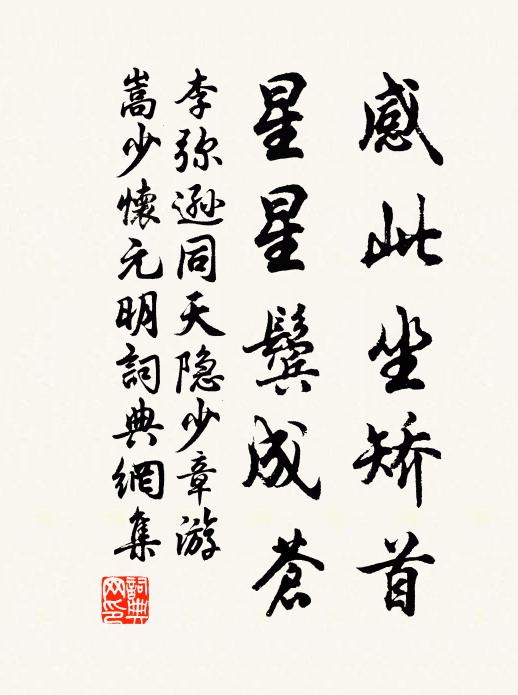 感此坐矫首
星星鬓成苍
李弥逊同天隐少章游
嵩少懷元明詞典網集
詞典网印